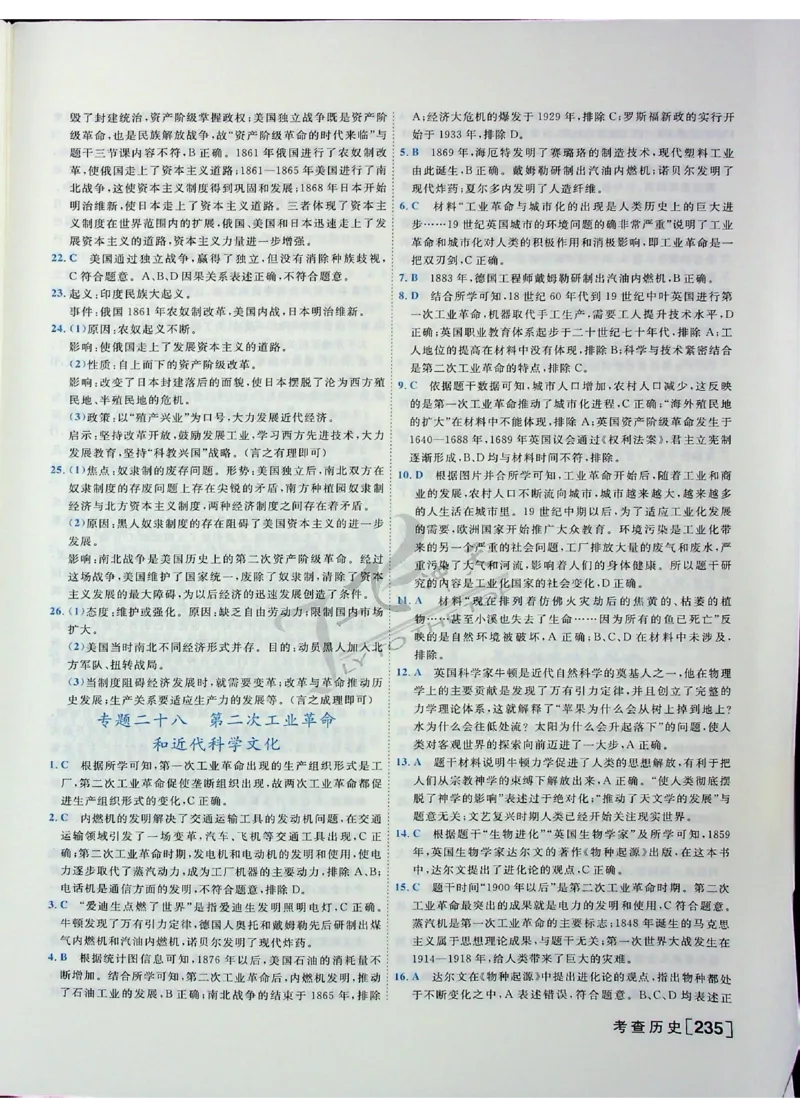 毁了封建统治,资产阶级掌握政权;美国独立战争既是资产阶
级革命,也是民族解放战争,故“资产阶级革命的时代来临”与
题干三节课内容不符,B正确。1861年俄国进行了农奴制改
革,使俄国走上了资本主义道路;1861—1865年美国进行了南
北战争,这使资本主义制度得到巩固和发展;1868年日本开始
明治维新,使日本走上了资本主义道路。三者体现了资本主
义制度在世界范围内的扩展,俄国、美国和日本迅速走上了发
展资本主义的道路,资本主义力量进一步增强。
22. C 美国通过独立战争,赢得了独立,但没有消除种族歧视,
C符合题意。A、B、D因果关系表述正确,不符合题意。
23. 起义:印度民族大起义。
事件:俄国1861年农奴制改革,美国内战,日本明治维新。
24. (1)原因:农奴起义不断。
影响:使俄国走上了发展资本主义的道路。
(2)性质:自上而下的资产阶级改革。
影响:改变了日本封建落后的面貌,使日本摆脱了沦为西方殖
民地、半殖民地的危机。
(3)政策:以“殖产兴业”为口号,大力发展近代经济。
启示:坚持改革开放,鼓励发展工业,学习西方先进技术,大力
发展教育,坚持“科教兴国”战略。(言之有理即可)
25. (1)焦点:奴隶制的废存问题。形势:美国独立后,南北双方在
奴隶制度的存废问题上存在尖锐的矛盾,南方种植园奴隶制
经济与北方资本主义制度,两种经济制度之间存在着矛盾。
(2)原因:黑人奴隶制度的存在阻碍了美国资本主义的进一步
发展。
影响:南北战争是美国历史上的第二次资产阶级革命。经过
这场战争,美国维护了国家统一,废除了奴隶制,清除了资本
主义发展的最大障碍,为以后经济的迅速发展创造了条件。
26. (1)态度:维护或强化。原因:缺乏自由劳动力;限制国内市场
扩大。
(2)美国当时南北不同经济形式并存。目的:动员黑人加入北
方军队、扭转战局。
(3)当制度阻碍经济发展时,就需要变革;改革与革命推动历
史发展;生产关系要适应生产力的发展等。(言之成理即可)
专题二十八 第二次工业革命
和近代科学文化
1. C 根据所学可知,第一次工业革命出现的生产组织形式是工
厂,第二次工业革命促使垄断组织出现,故两次工业革命都促
进生产组织形式的变化,C正确。
2. C 内燃机的发明解决了交通运输工具的发动机问题,在交通
运输领域引发了一场变革,汽车、飞机等交通工具出现,C正
确;第二次工业革命时期,发电机和电动机的发明和使用,使电
力逐步取代了蒸汽动力,成为工厂机器的主要动力,排除A、B;
电话机是通信方面的发明,不符合题意,排除D。
3. C “爱迪生点燃了世界”是指爱迪生发明照明电灯,C正确。
牛顿发现了万有引力定律,德国人奥托和戴姆勒先后研制出煤
气内燃机和汽油内燃机,诺贝尔发明了现代炸药。
4. B 根据统计图信息可知,1876年以后,美国石油的消耗量不
断增加。结合所学可知,第二次工业革命,内燃机发明,推动
了石油工业的发展,B正确;南北战争的结束于1865年,排除
A;经济大危机的爆发于1929年,排除C;罗斯福新政的实行开
始于1933年,排除D。
5. B 1869年,海厄特发明了赛璐珞的制造技术,现代塑料工业
由此诞生,B正确。戴姆勒研制出汽油内燃机;诺贝尔发明了
现代炸药;夏尔多内发明了人造纤维。
6. C 材料“工业革命与城市化的出现是人类历史上的巨大进
步……19世纪英国城市的环境问题的确非常严重”说明了工业
革命和城市化对人类的积极作用和消极影响,即工业革命是一
把双刃剑,C正确。
7. B 1883年,德国工程师戴姆勒研制出汽油内燃机,B正确。
8. D 结合所学可知,18世纪60年代到19世纪中叶英国进行第
一次工业革命,机器取代手工生产,需要工人提升技术水平,D
正确;英国职业教育体系起步于二十世纪七十年代,排除A;工
人地位的提高在材料中没有体现,排除B;科学与技术紧密结合
是第二次工业革命的特点,排除C。
9. C 依据题干数据可知,城市人口增加,农村人口减少,这反映
的是第一次工业革命推动了城市化进程,C正确;“海外殖民地
的扩大”在材料中不能体现,排除A;英国资产阶级革命发生于
1640—1688年,1689年英国议会通过《权利法案》,君主立宪制
逐渐形成,B、D均与材料时间不符,排除。
10. D 根据图片并合所学可知,工业革命开始后,随着工业和商
业的发展,农村人口不断流向城市,城市越来越大,越来越多
的人生活在城市里。19世纪中期以后,为了适应工业化发展
的需要,欧洲国家开始推广大众教育。环境污染是工业化带
来的另一个严重的社会问题,工厂排放大量的废气和废水,严
重污染了大气和河流,影响着人们的身体健康。所以题干研
究的内容是工业化国家的社会变化,D正确。
11. A 材料“现在排列着仿佛火灾劫后的焦黄的、枯萎的植
物……,甚至小溪也失去了生命……因为所有的鱼已死亡”反
映的是自然环境被破坏,A正确;B、C、D在材料中未涉及,
排除。
12. A 英国科学家牛顿是近代自然科学的奠基人之一,他在物理
学上的主要贡献是发现了万有引力定律,并且创立了完整的
力学理论体系,这就解释了“苹果为什么会从树上掉到地上?
水为什么会往低处流?太阳为什么会升起落下”的问题,使人
类对客观世界的探索向前迈进了一大步,A正确。
13. A 题干材料说明牛顿力学促进了人类的思想解放,有利于把
人们从宗教神学的束缚下解放出来,A正确。“使人类彻底摆
脱了神学的影响”表述过于绝对化;“推动了天文学的发展”与
题意无关;文艺复兴时期人类已经开始关注现实世界。
14. C 根据题干“生物进化”“英国生物学家”及所学可知,1859
年,英国生物学家达尔文的著作《物种起源》出版,在这本书
中,达尔文提出了进化论的观点,C正确。
15. C 题干时间“1900年以后”是第二次工业革命时期。第二次
工业革命最突出的成果就是电力的发明和使用,C符合题意。
蒸汽机是第一次工业革命的主要标志;1848年诞生的马克思
主义属于思想理论成果,与题干无关;第一次世界大战发生在
1914—1918年,给人类带来了巨大的灾难。
16. A 达尔文在《物种起源》中提出进化论的观点,指出物种都处
于不断变化之中,A表述错误,符合题意。B、C、D均表述正
考查历史[235]